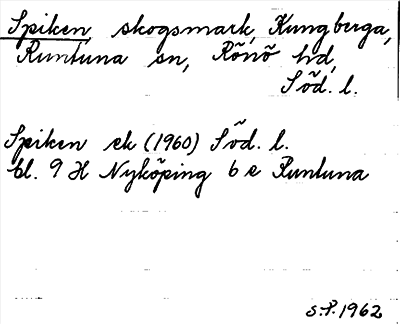 Spiken, skogsmark, Kungberga,
Runtuna sn, Rönö hd,
Söd. l.
Spiken ek (1960) Söd. l.
bl. 9 H Nyköping 6 e Runtuna
S.P. 1962